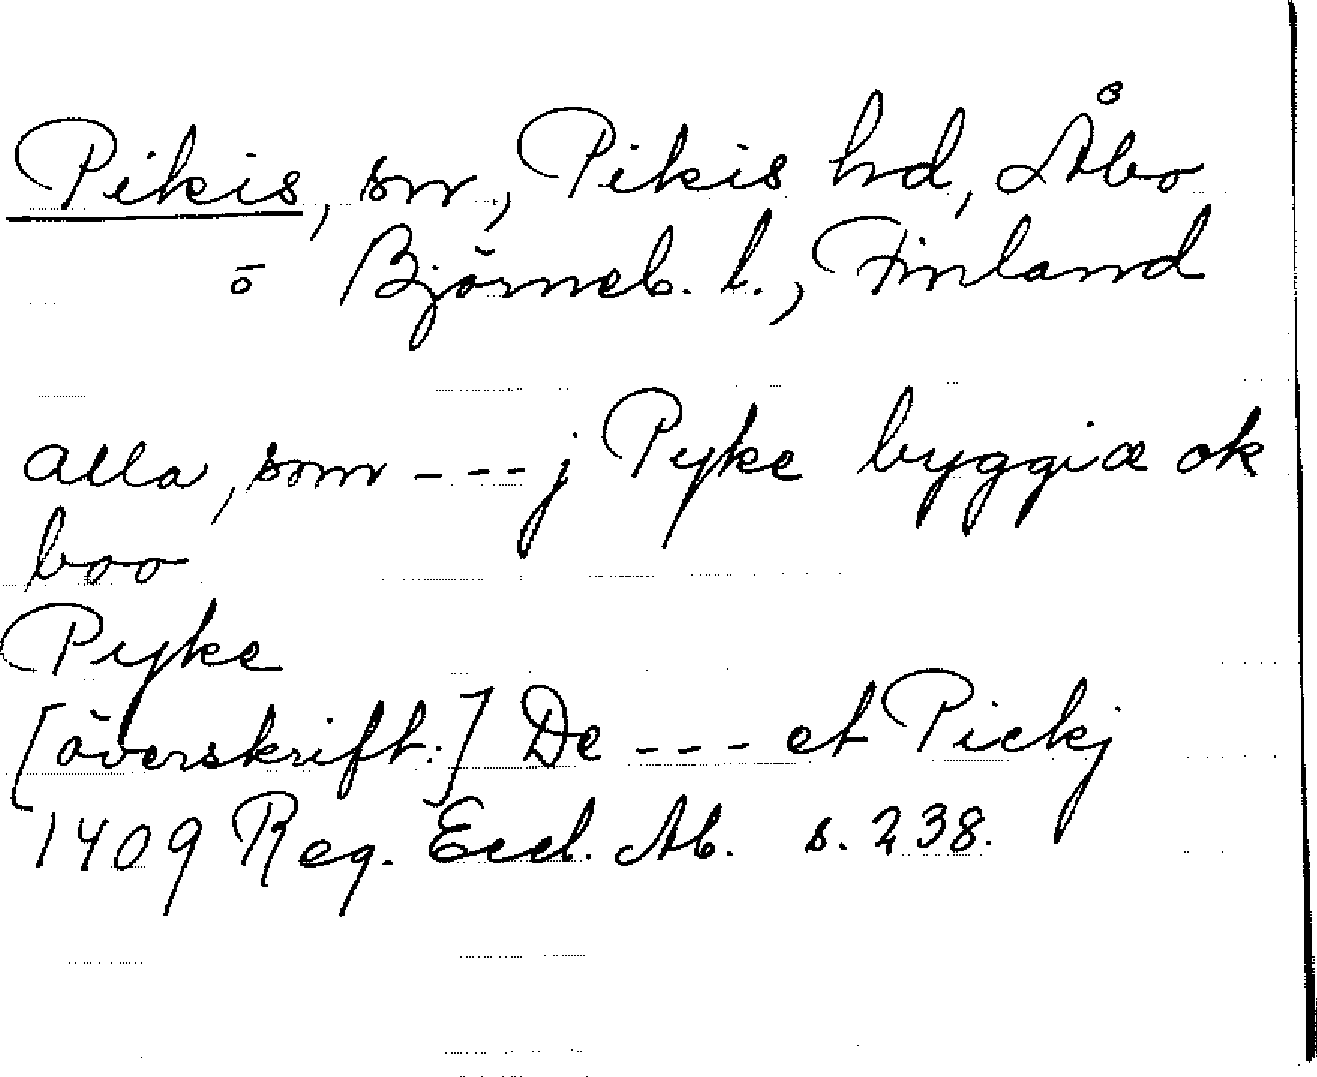 Pikis, sn, Pikis hd, Åbo
o Björneb. l., Finland
alla, som --- j Pyke byggiæ ok
boo
Pyke
[överskrift:] De --- et Pickj
1409 Reg. Eccl. Ab. s. 238.